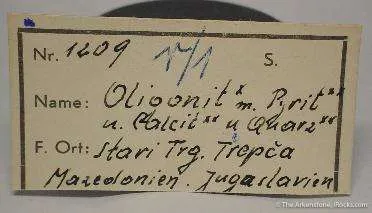 Nr. 1209 17/1 S.
Name: Oligonit x m. Pyrit xx
u. Calcit xx u Quarz xx
F. Ort: Stari Trg. Trepča
Mazedonien. Jugoslavien
© The Arkenstone, iRocks.com